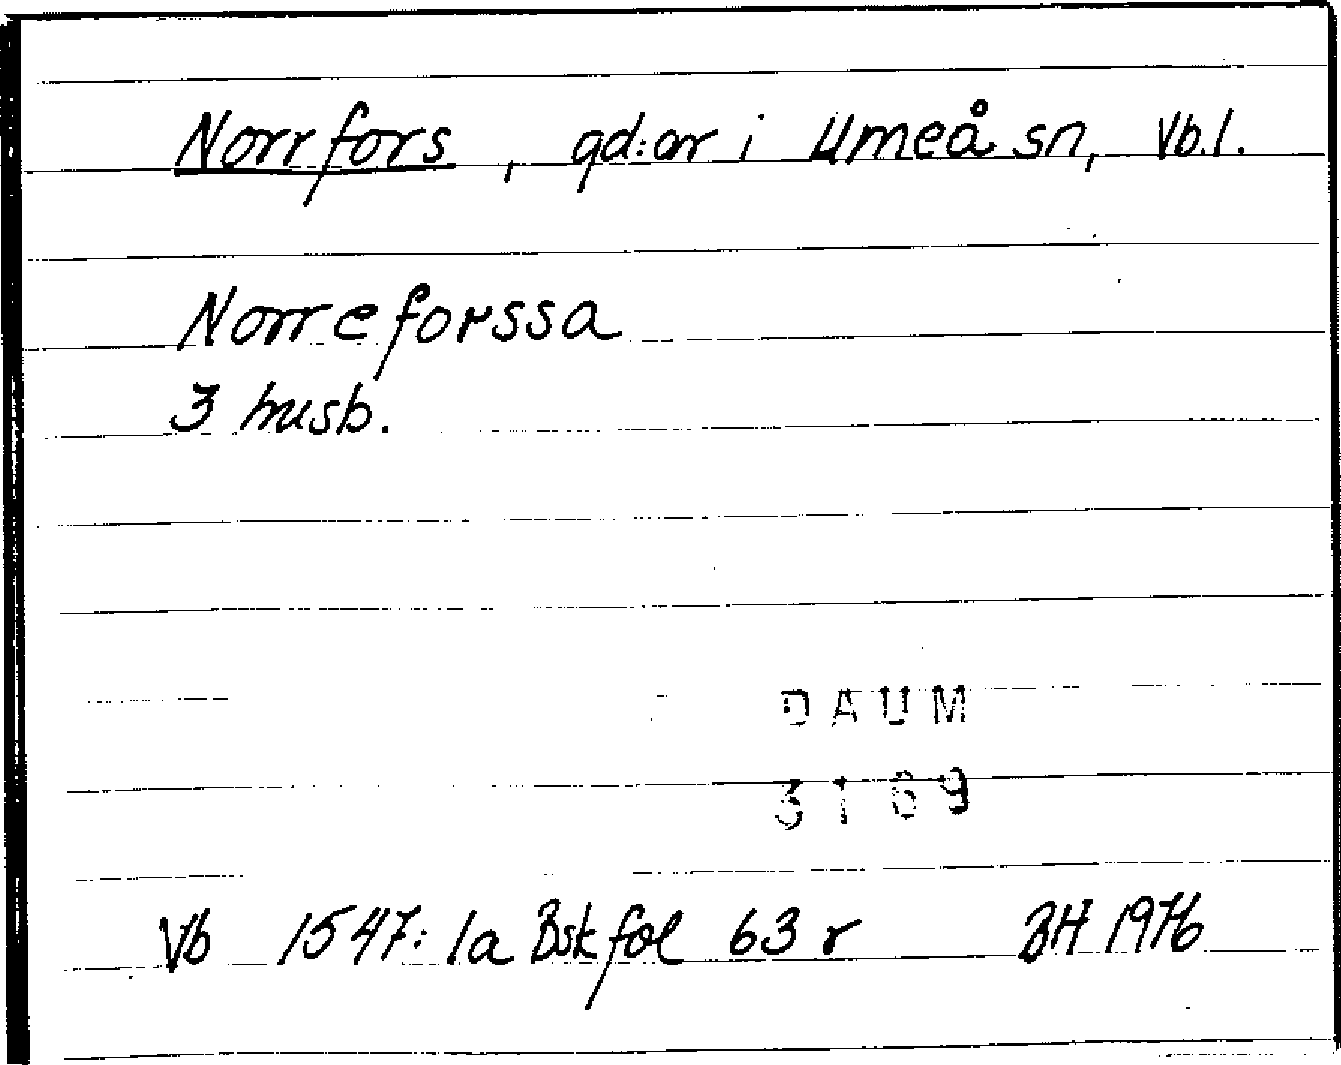 Norrfors, gd:ar i Umeå sn, Vb.l.
Norreforssa
3 husb.
DAUM
3169
Vb 1547:1a Bsk fol 63 r BH 1976